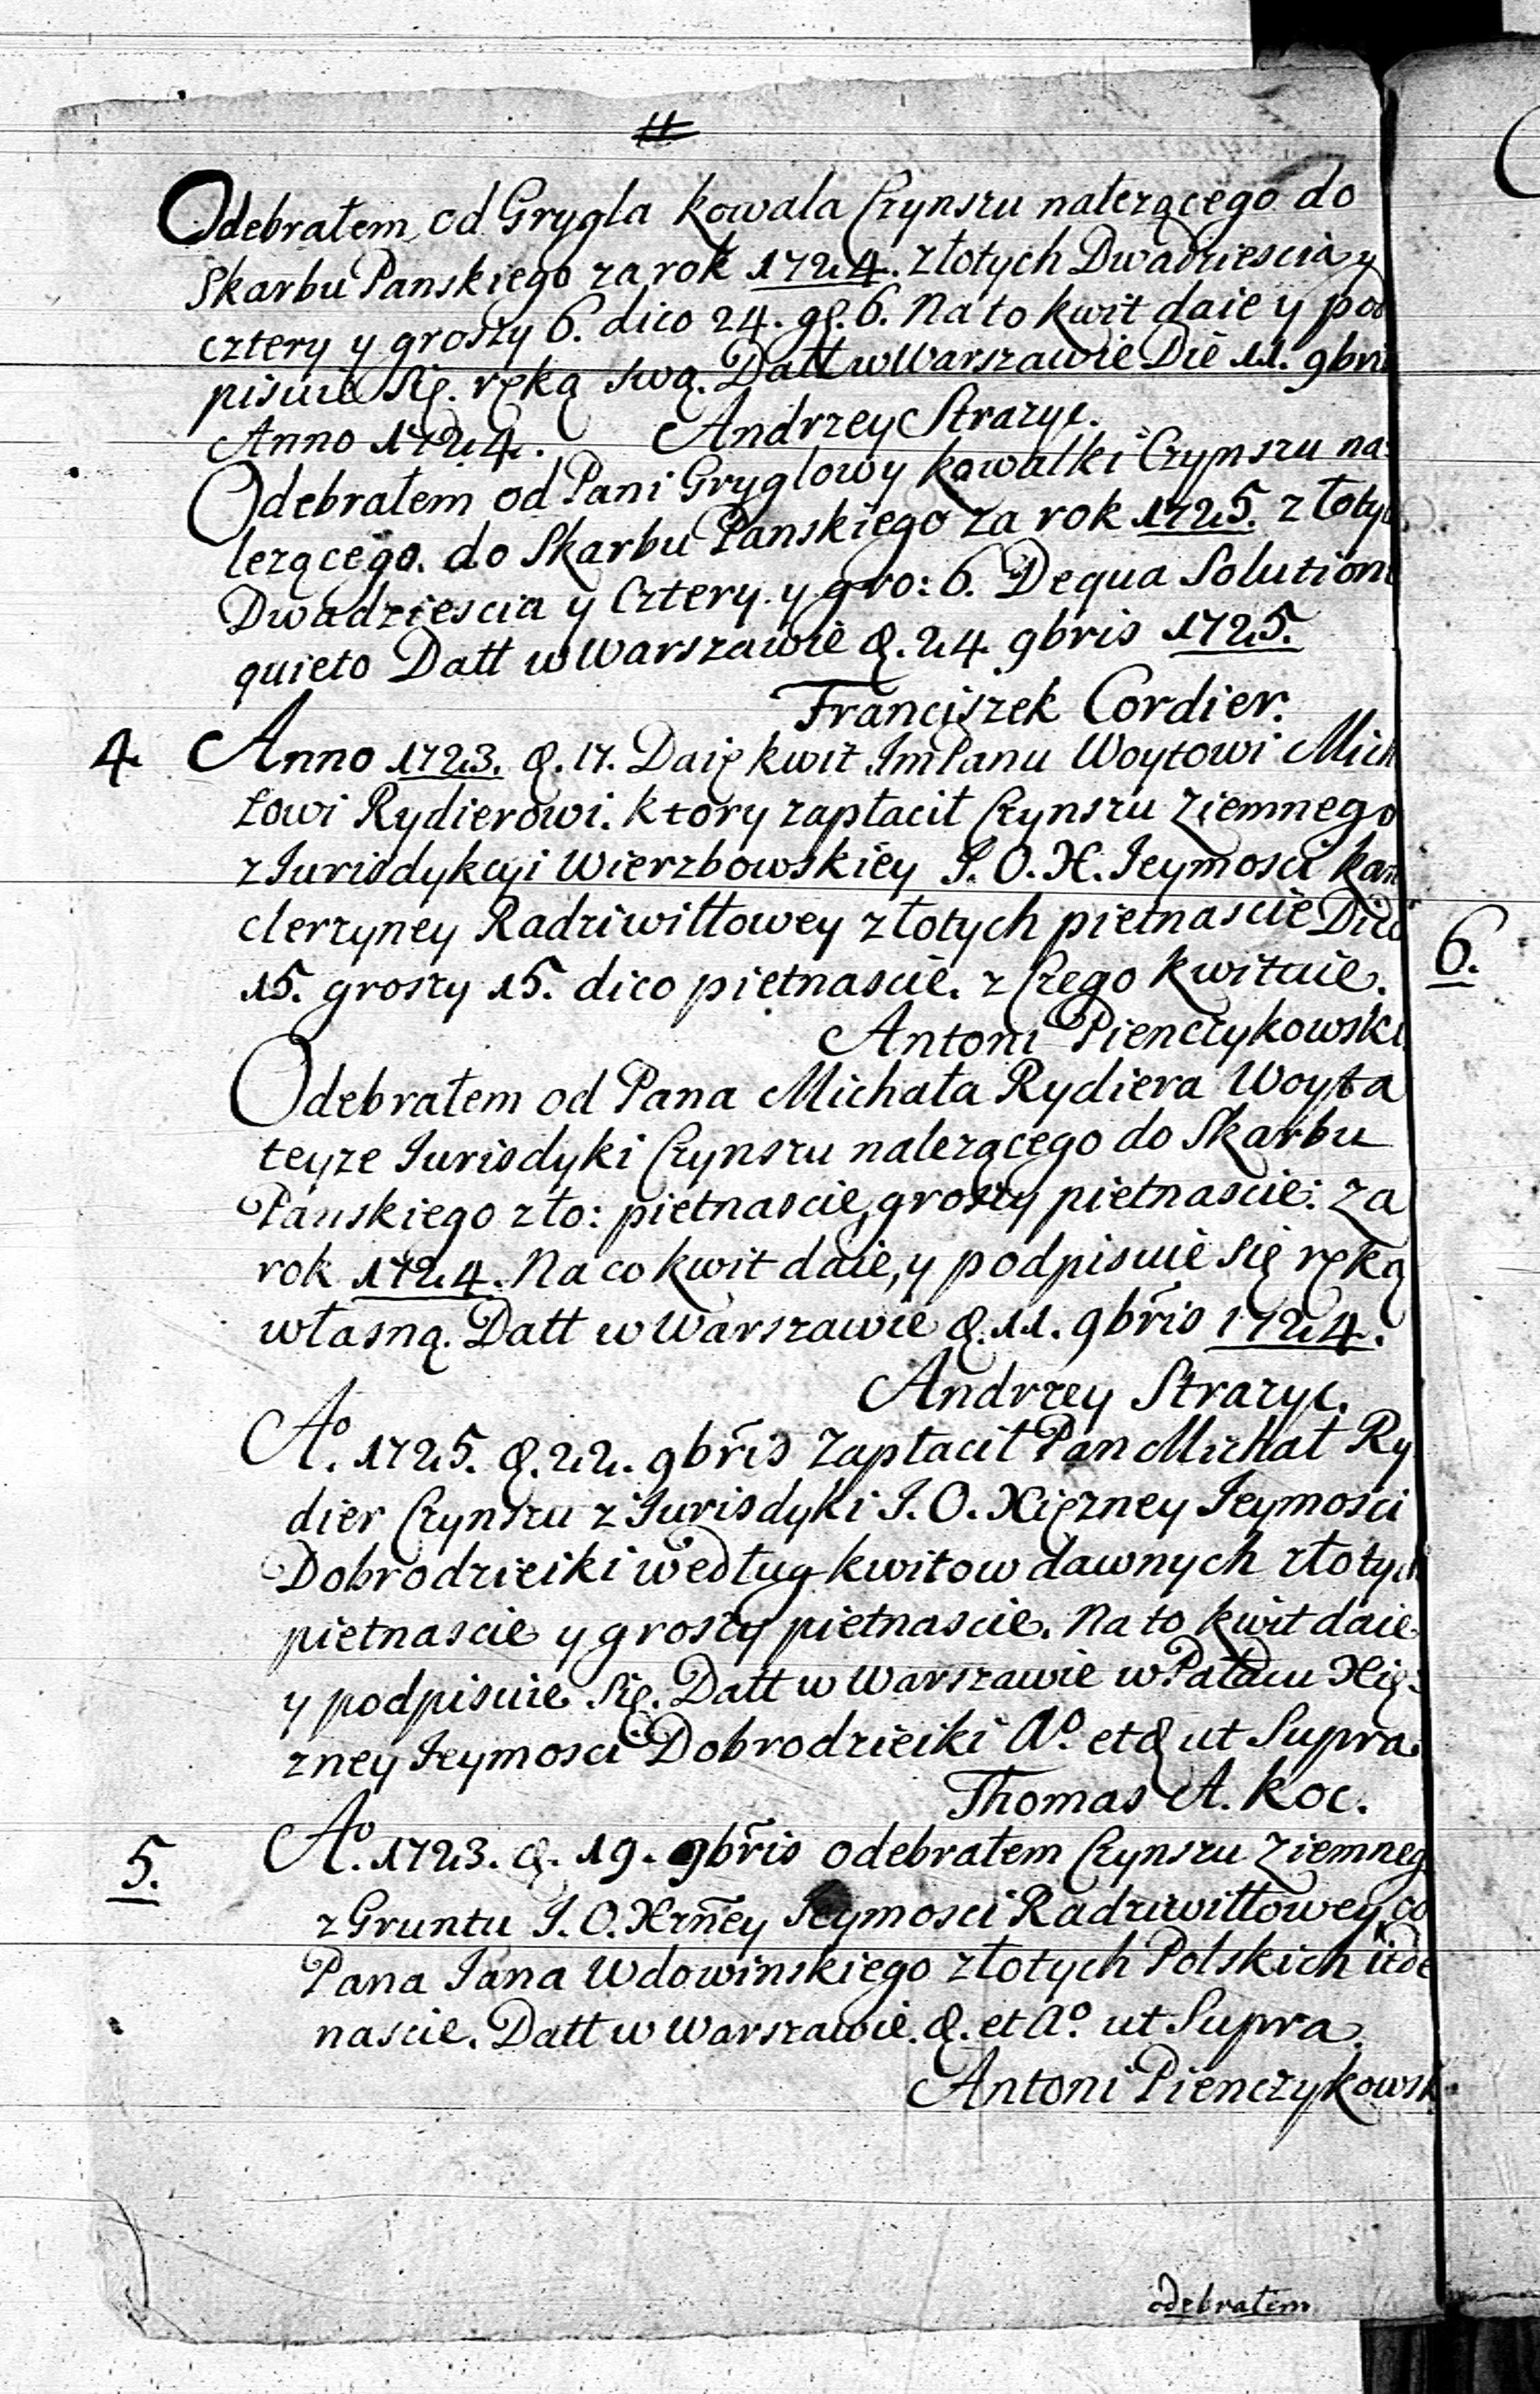 Odebrałem od Grygla kowala Czynszu nalezącego do
Skarbu Panskiego za rok 1724. złotych Dwadziescia y
cztery y groszy 6. dico 24. gſ. 6. Na to kwit daie y pod
pisuie się. ręką swą. Datt w Warszawie Die 11. 9bris
Anno 1724. Andrzey Strazyc.
Odebrałem od Pani Gryglowy kowalki Czynszu na:
lezącego. do Skarbu Panskiego za rok 1725. złoty
Dwadziescia y Cztery y gro: 6. Dequa Solutione
quieto Datt w Warszawie d. 24 9bris 1725.
Franciszek Cordier.
4. Anno 1723. d. 17. Daię kwit ImPanu Woytowi Mich
łowi Rydierowi. ktory zapłacił Czynszu Ziemnego
z Jurisdykcyi Wierzbowskiey J. O. X. Jeymosci kan
clerzyney Radziwiłłowey złotych pietnascie Dico
15. groszy 15. dico pietnascie. z Czego kwituie.
Antoni Pienczykowski
Odebrałem od Pana Michała Rydiera Woyta
teyze Jurisdyki Czynszu nalezącego do Skarbu
Panskiego zło: pietnascie, groszy pietnascie: za
rok 1724. Na co kwit daie, y podpisuie się ręką
własną. Datt w Warszawie d. 11. 9bris 1724.
Andrzey Strazyc.
Aº. 1725. d. 22. 9bris Zapłacił Pan Michał Ry
dier Czynszu z Jurisdyki J. O. Xięzney Jeymosci
Dobrodzieiki według kwitow dawnych złotych
pietnascie y groszy pietnascie. Na to kwit daie
y podpisuie się. Datt w Warszawie w Pałacu Xię:
zney Jeymosci Dobrodzieiki Aº. et d ut Supra.
Thomas A. Koc.
5. Aº. 1723. d. 19. 9bris odebrałem Czynszu Ziemneg
z Gruntu J. O. Xzney Jeymosci Radziwiłłowey, od
Pana Jana Wdowinskiego złotych Polskich iede
nascie. Datt w Warszawie. d. et Aº. ut Supra.
Antoni Pienczykowsk
odebrałem
6.